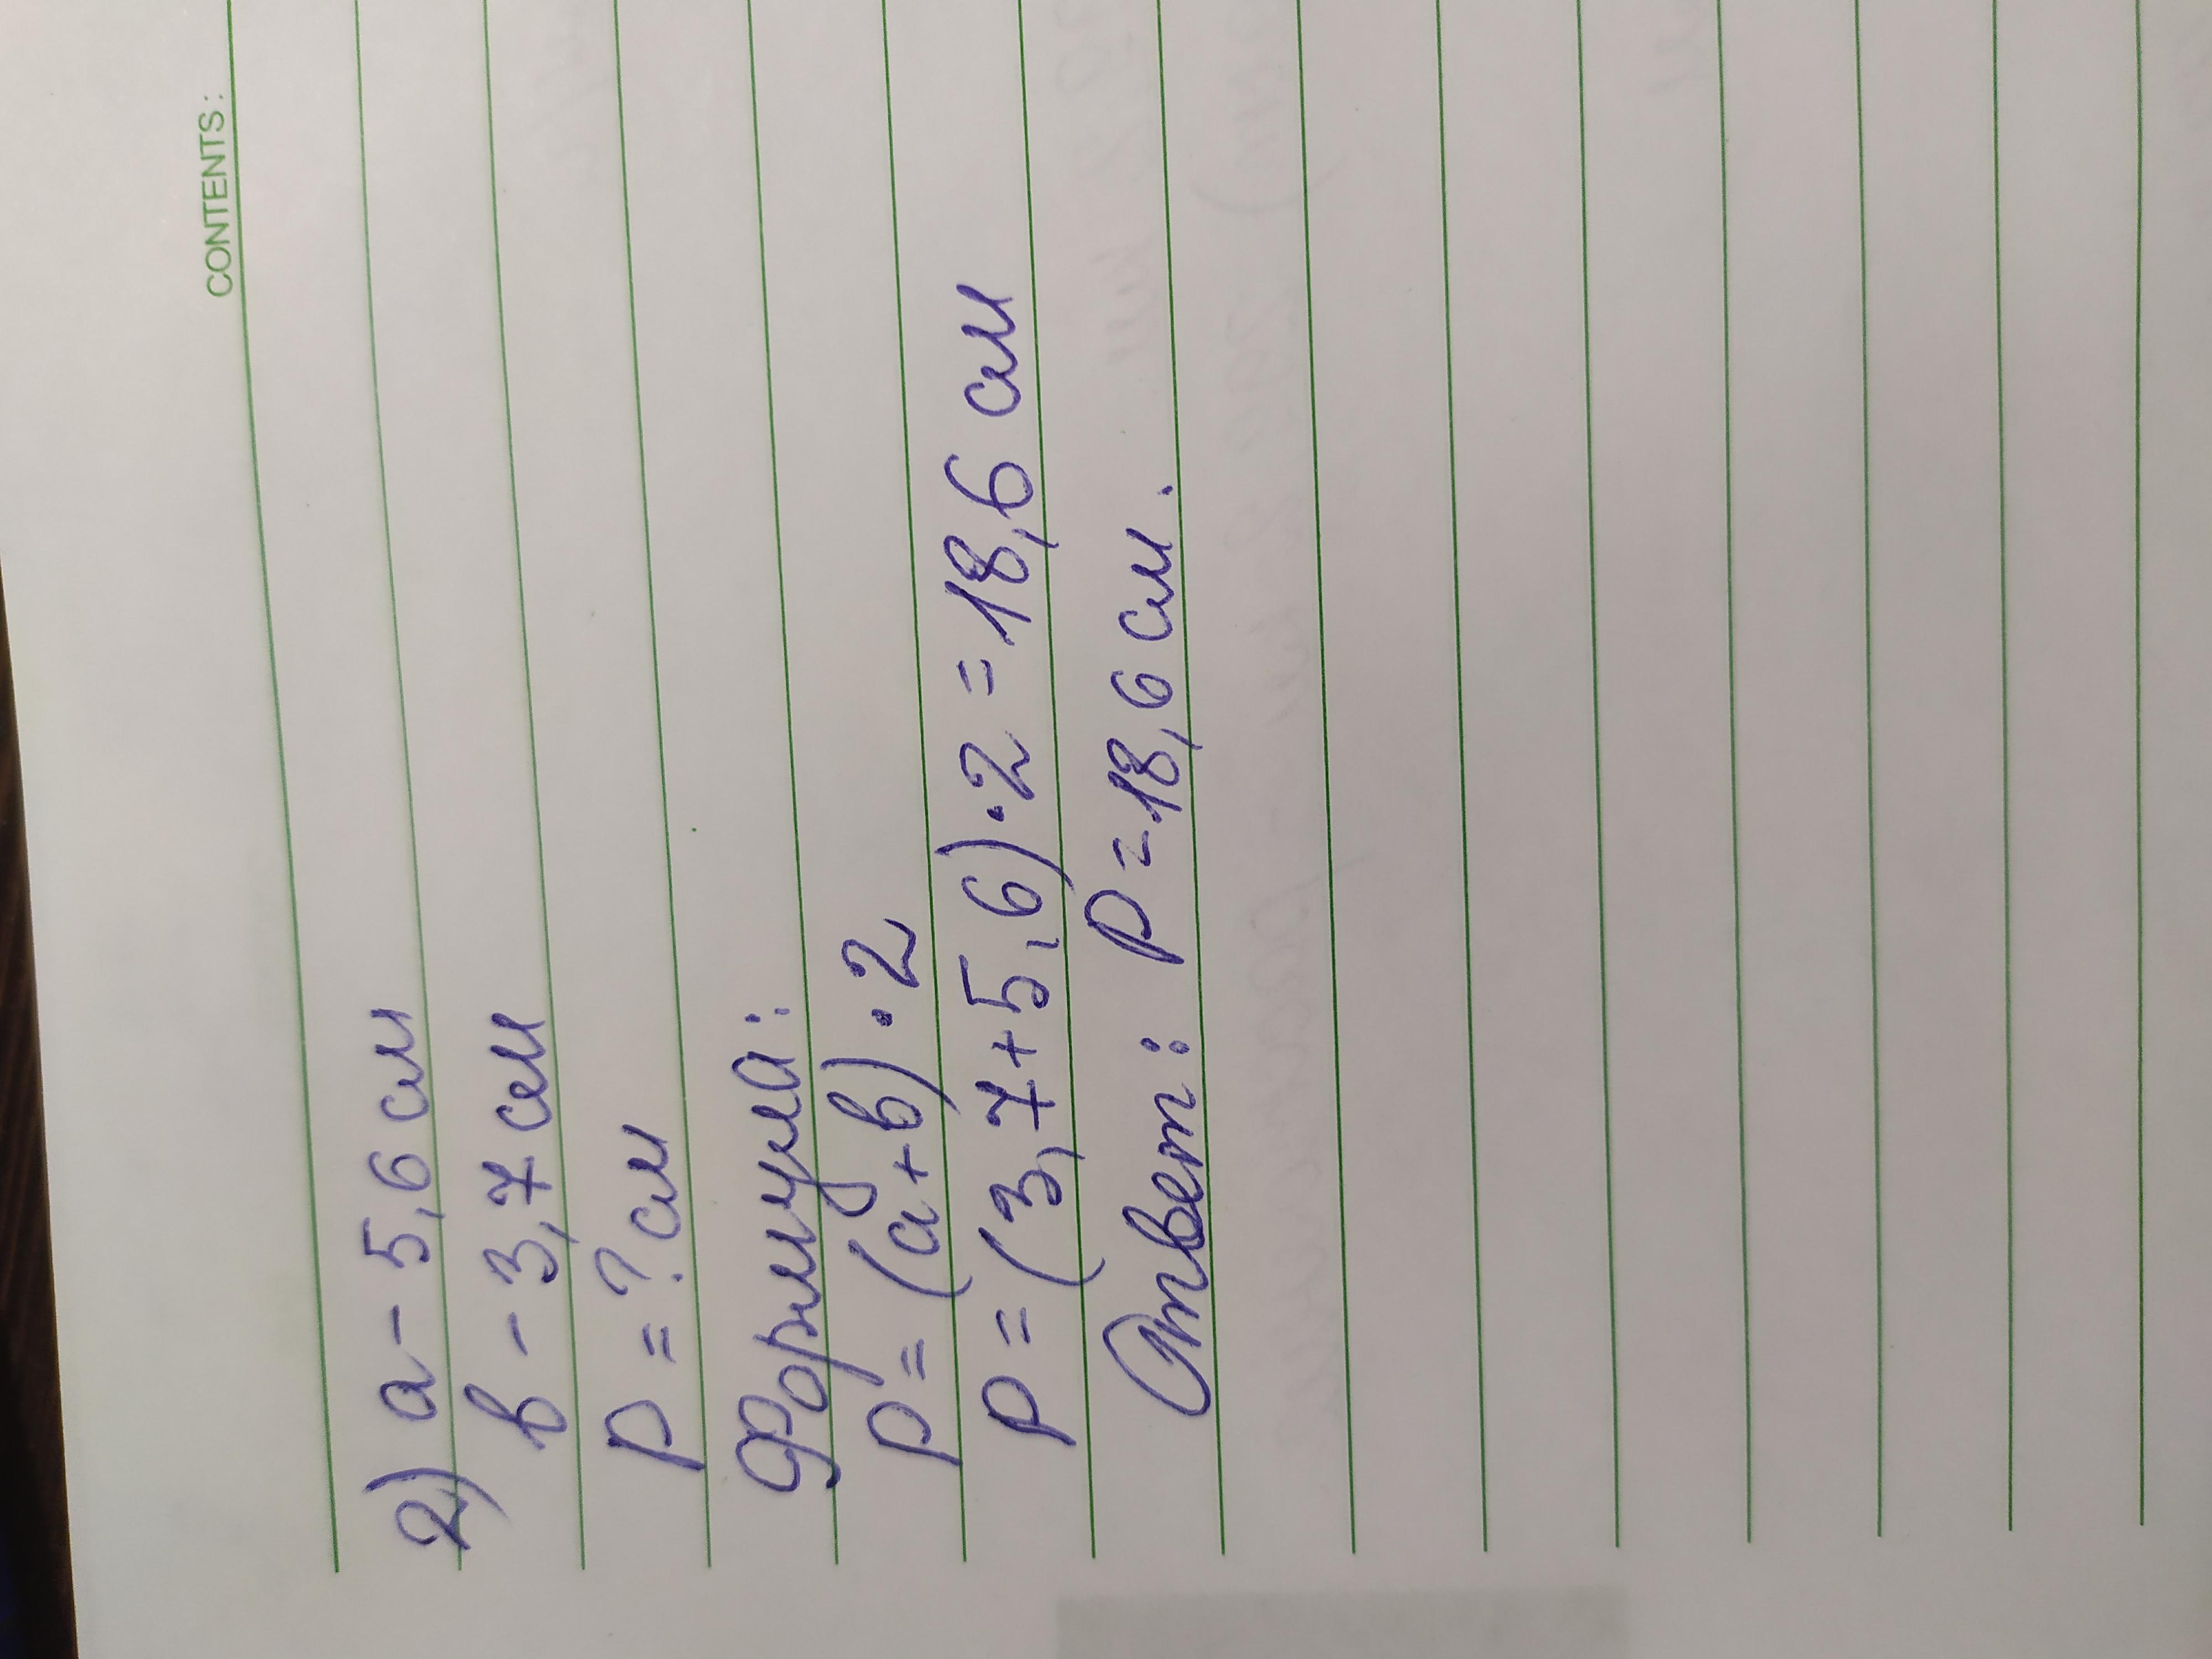 CONTENTS:
2) а - 5,6 см
в - 3,7 см
P = ? см
Формула:
P = (а+в)·2
P = (3,7+5,6)·2 = 18,6 см
Ответ: P = 18,6 см.